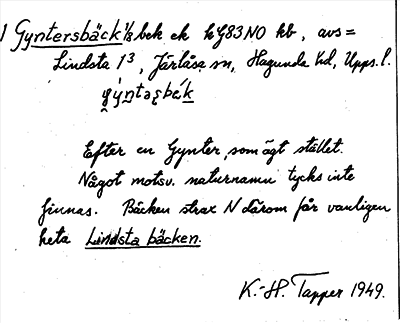 1 Gyntersbäck 1/8 bek ek hG83NO kb, avs=
Lindsta 1³, Järlåsa sn, Hagunda hd, Upps.l.
Efter en Gynter, som ägt stället.
Något motsv. naturnamn tycks inte
finnas. Bäcken strax N därom får vanligen
heta Lindsta bäcken.
K.-H. Tapper 1949.